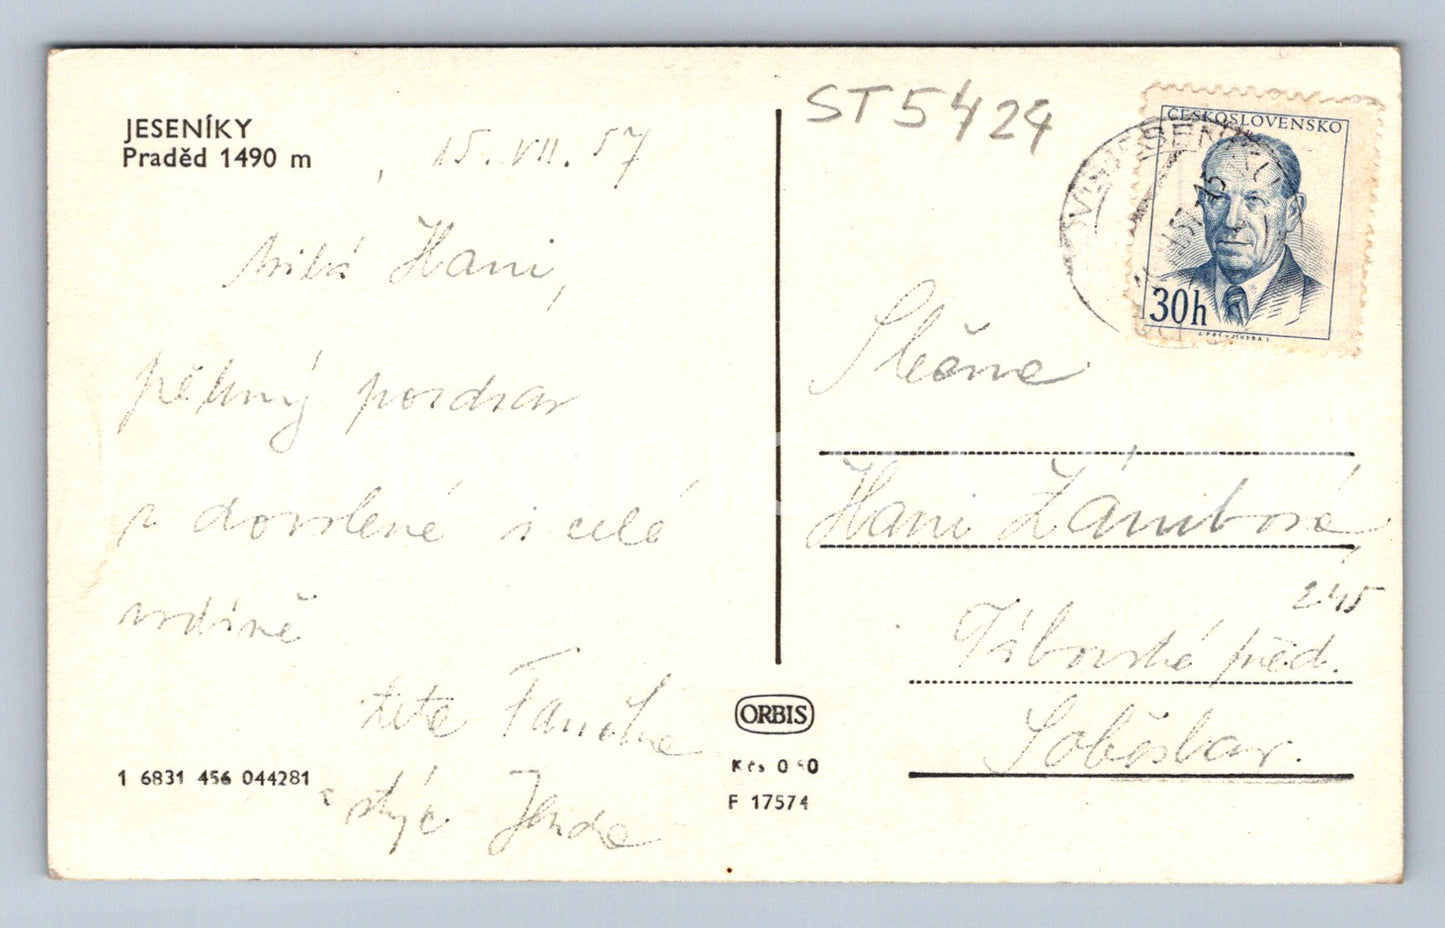 JESENÍKY
Praděd 1490 m
15. VII. 57
Milá Hani,
pěkný pozdrav
z dovolené i celé
rodině
teta Fanynka
a strýc Jenda
1 6831 456 044281
ORBIS
Kčs 0 60
F 17574
ST5424
ČESKOSLOVENSKO
30h
Slečna
Hani
245
Táborské před.
Soběslav.